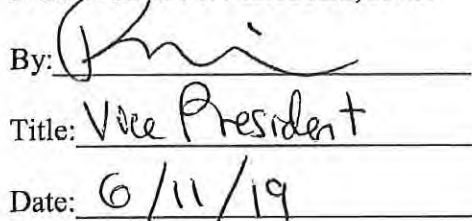 By:
Title: Vice President
Date: 6/11/19